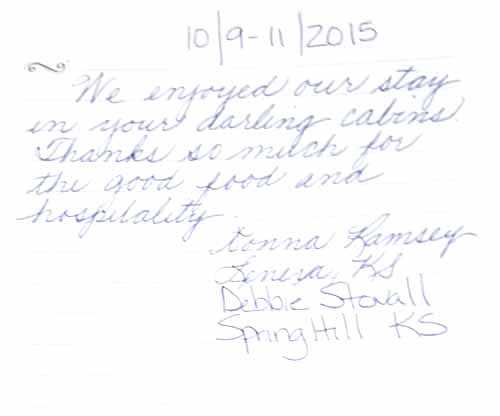 10/9-11/2015
We enjoyed our stay
in your darling cabins
Thanks so much for
the good food and
hospitality.
Ramsey
Lenexa, KS
Debbie Stovall
Spring Hill KS